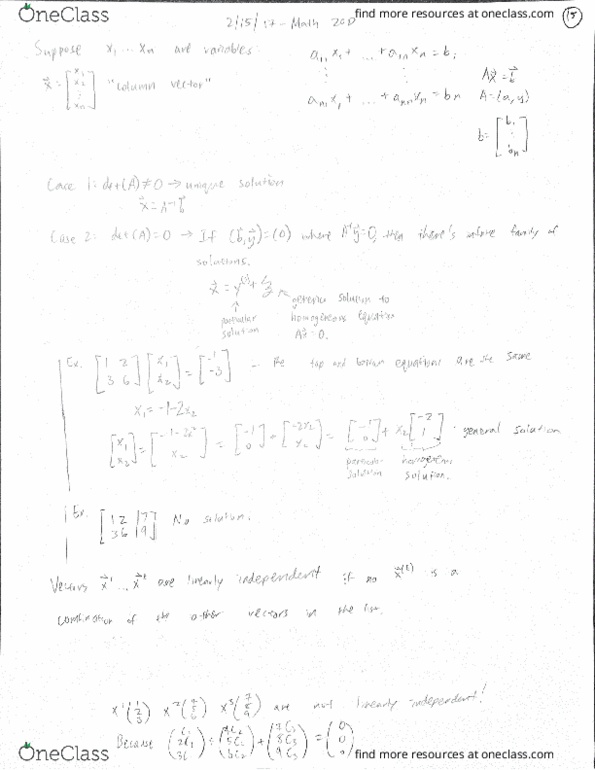 OneClass
find more resources at oneclass.com
2/15/17 - Math 20D
15
Suppose x₁ ... xₙ are variables
a₁₁x₁ + ... + a₁ₙxₙ = b₁
x⃗ = [x₁ x₂ ⋮ xₙ] "column vector"
⋮ ⋮
Ax⃗ = b⃗
aₙ₁x₁ + ... + aₙₙxₙ = bₙ
b = [b₁ ⋮ bₙ]
Case 1: det(A) ≠ 0 → unique solution
x⃗ = A⁻¹b⃗
Case 2: det(A) = 0 → If (b⃗, y⃗) = (0) where y⃗ = 0, then there's infinite family of
solutions.
particular solution
generic solution to homogeneous equation Ax⃗ = 0.
Ex. [1 2 3 6] [x₁ x₂] = [-1 -3] the top and bottom equations are the same
x₁ = -1 - 2x₂
[x₁ x₂] = [-1-2x₂ x₂] = [-1 0] + [-2x₂ x₂] = [-1 0] + x₂[-2 1] general solution
particular solution
homogeneous solution.
Ex. [1 2 | 7 3 6 | 9] No solution.
Vectors x⃗¹ ... are linearly independent if no is a
combination of the other vectors in the list.
x¹(1 2 3) x²(4 5 6) x³(7 8 9) are not linearly independent!
Because (c₁ 2c₁ 3c₁) + (4c₂ 5c₂ 6c₂) + (7c₃ 8c₃ 9c₃) = (0 0 0)
OneClass
find more resources at oneclass.com